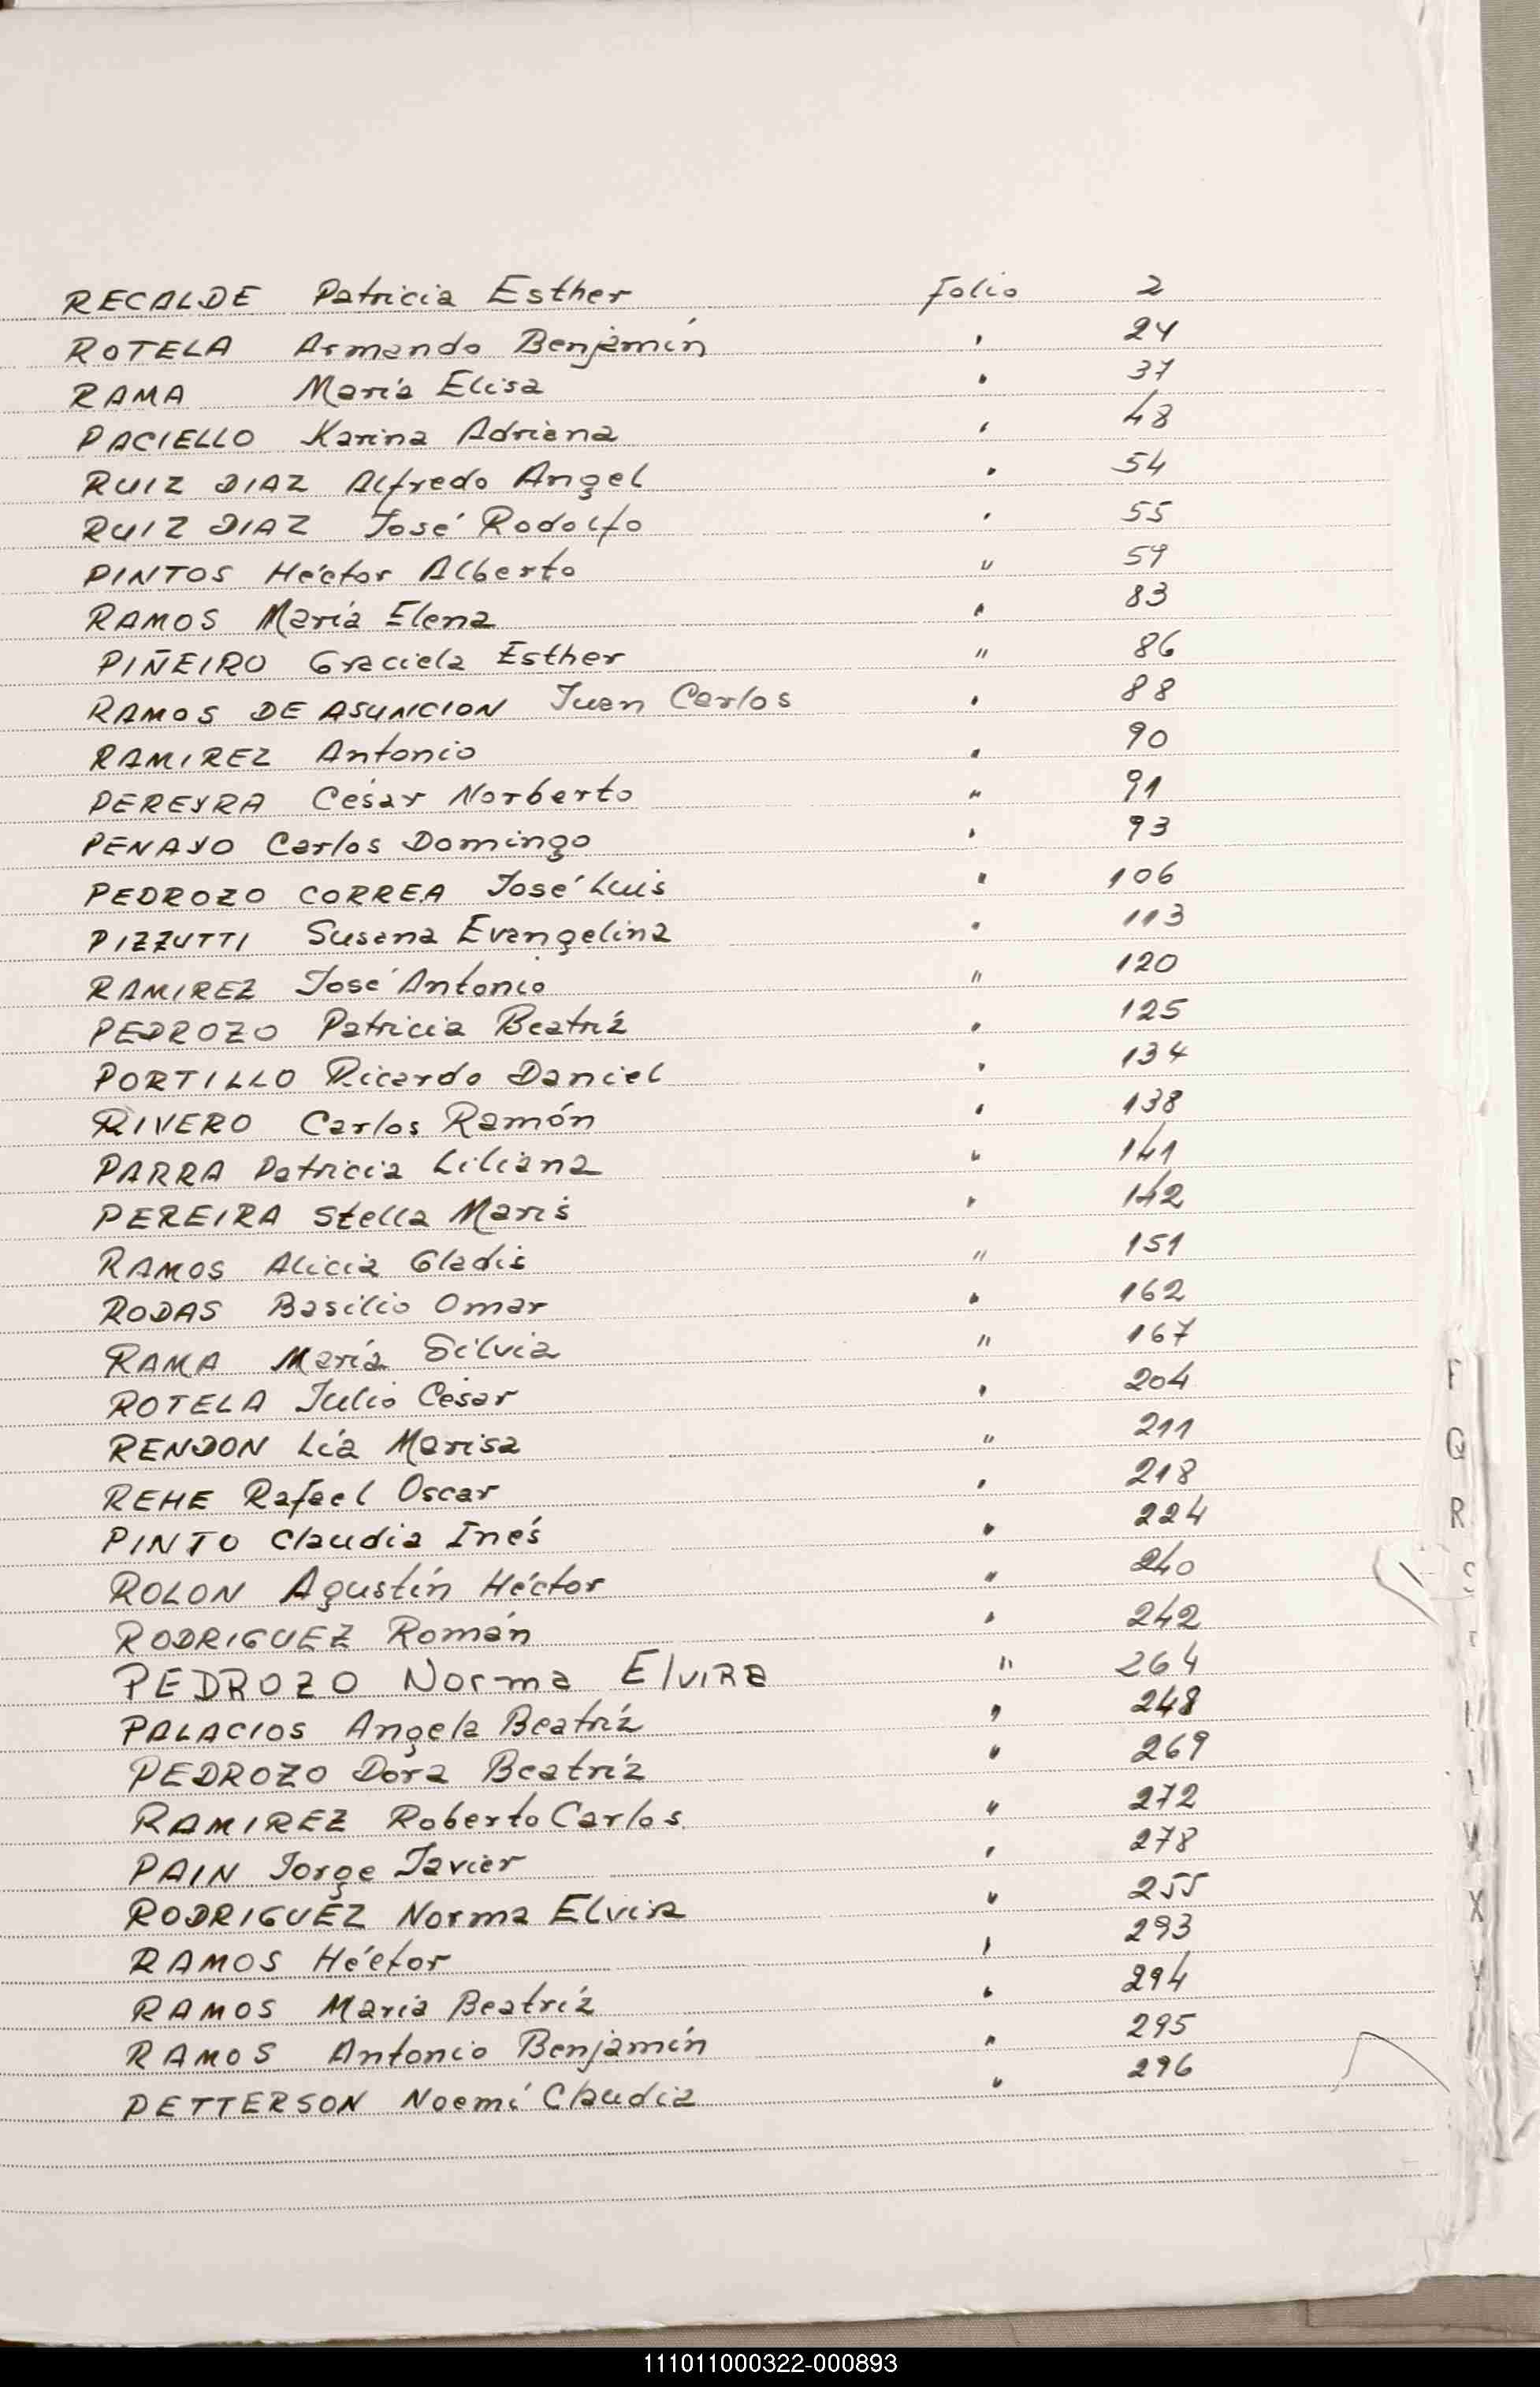 RECALDE Patricia Esther Folio 2
ROTELA Armando Benjamín " 24
RAMA María Elisa " 37
PACIELLO Karina Adriana " 48
RUIZ DIAZ Alfredo Angel " 54
RUIZ DIAZ José Rodolfo " 55
PINTOS Héctor Alberto " 59
RAMOS María Elena " 83
PIÑEIRO Graciela Esther " 86
RAMOS DE ASUNCION Juan Carlos " 88
RAMIREZ Antonio " 90
PEREYRA César Norberto " 91
PENAYO Carlos Domingo " 93
PEDROZO CORREA José Luis " 106
PIZZUTTI Susana Evangelina " 113
RAMIREZ José Antonio " 120
PEDROZO Patricia Beatríz " 125
PORTILLO Ricardo Daniel " 134
RIVERO Carlos Ramón " 138
PARRA Patricia Liliana " 141
PEREIRA Stella Maris " 142
RAMOS Alicia Gladis " 151
RODAS Basilio Omar " 162
RAMA María Silvia " 167
ROTELA Julio César " 204
RENDON Lía Marisa " 211
REHE Rafael Oscar " 218
PINTO Claudia Inés " 224
ROLON Agustín Héctor " 240
RODRIGUEZ Román " 242
PEDROZO Norma Elvira " 264
PALACIOS Angela Beatríz " 248
PEDROZO Dora Beatríz " 269
RAMIREZ Roberto Carlos " 272
PAIN Jorge Javier " 278
RODRIGUEZ Norma Elvira " 255
RAMOS Héctor " 293
RAMOS María Beatríz " 294
RAMOS Antonio Benjamín " 295
PETTERSON Noemí Claudia " 296
Q
R
S
X
Y
111011000322-000893